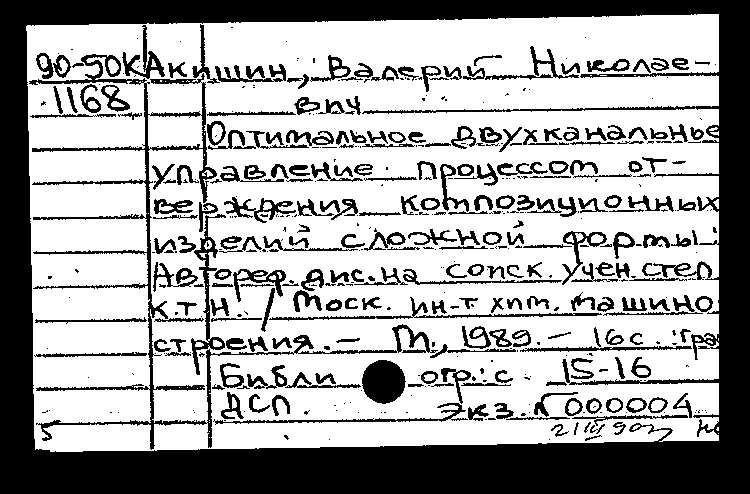 90-50К Акишин, Валерий Николае-
1168 вич
Оптимальное двухканальные
управление процессом от-
верждения композиционных
изделий сложной формы:
Автореф. дис. на соиск. учен. степ
к.т.н. / Моск. ин-т хим. машино
строения. – М., 1989. – 16 с. : гра
Библи огр.: с. 15-16
ДСП. Экз. N 000004
5 21 III 90г